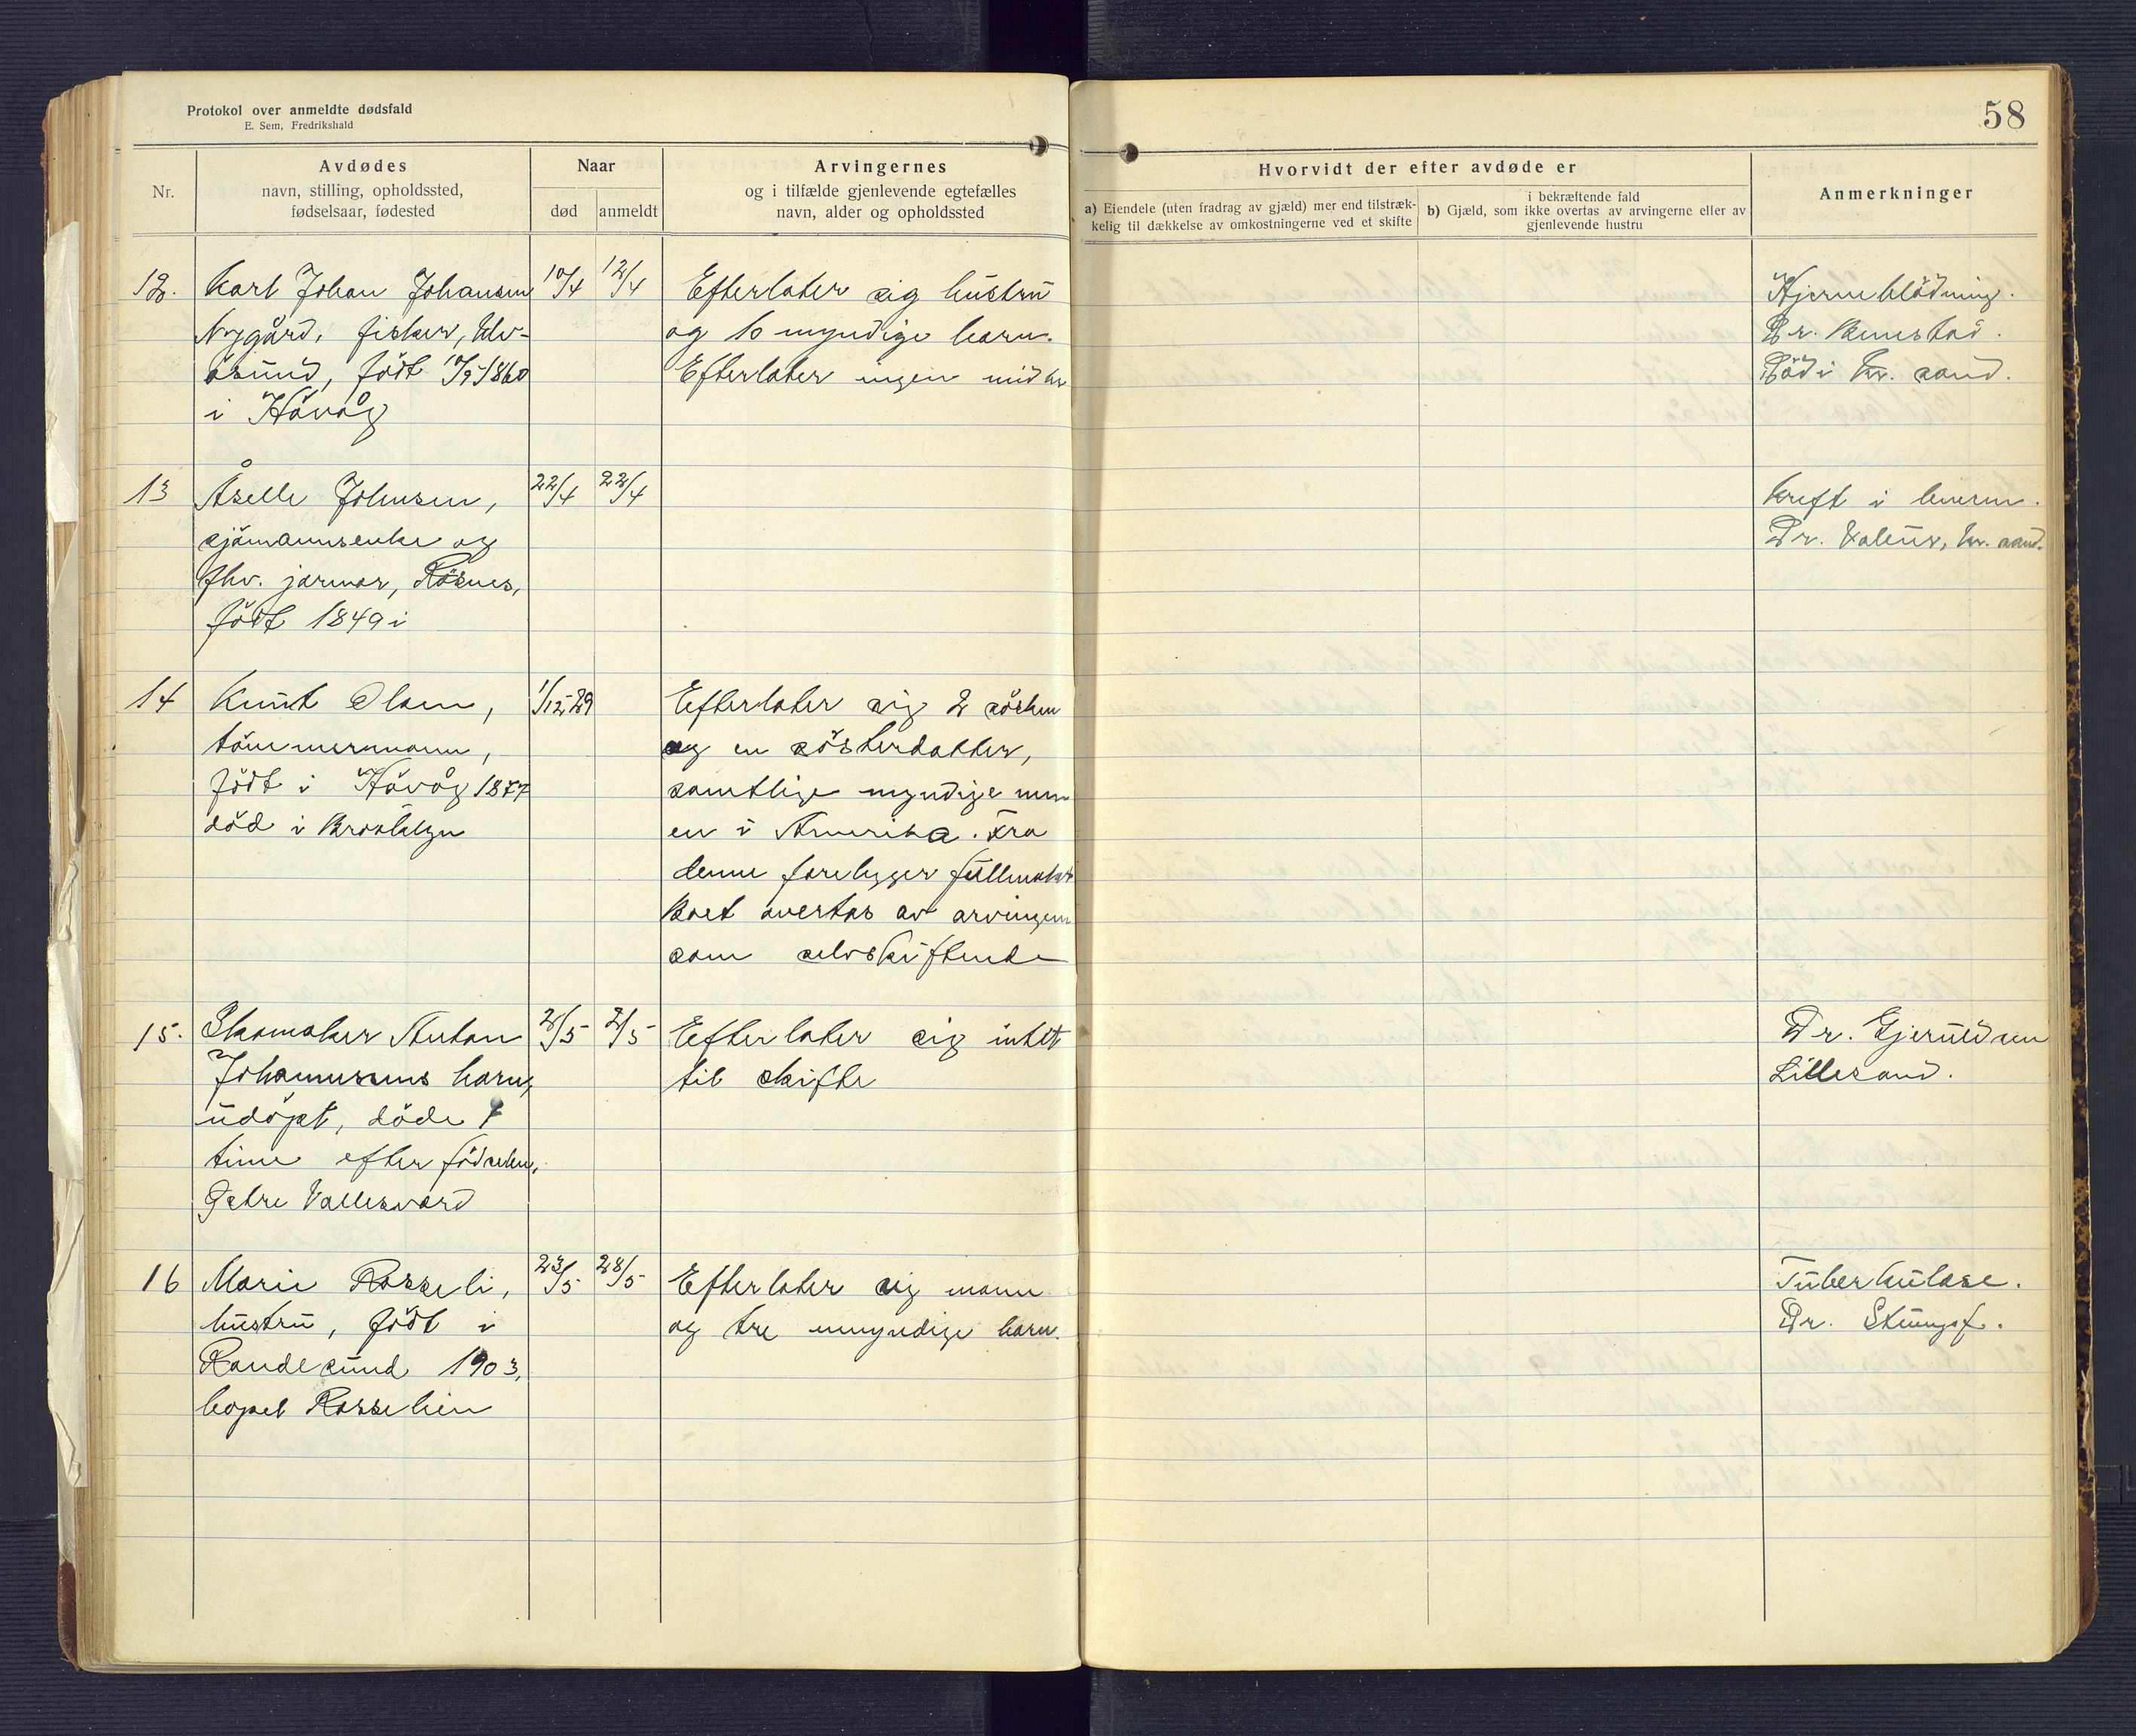 Protokol over anmeldte dødsfald
E. Sem, Fredrikshald
58
Nr.
Avdødes
navn, stilling, opholdssted,
fødselsaar, fødested
Naar
død
anmeldt
Arvingernes
og i tilfælde gjenlevende egtefælles
navn, alder og opholdssted
Hvorvidt der efter avdøde er
a) Eiendele (uten fradrag av gjæld) mer end tilstræk-
kelig til dækkelse av omkostningerne ved et skifte
i bekræftende fald
b) Gjæld, som ikke overtas av arvingerne eller av
gjenlevende hustru
Anmerkninger
12.
Karl Johan Johansen
Nygård, fisker, Ulv-
øsund, født 10/9 1860
i Høvåg
10/4
12/4
Efterlater sig hustru
og 10 myndige barn.
Efterlater ingen midler
Hjerneblødning.
Dr.
Død i Kr. sand.
13
Åselle Johnsen,
sjømannsenke og
fhv. jormor, Røsnes,
født 1849 i
22/4
22/4
Kreft i
Dr. Kr. sand.
14
Knut Olsen,
tømmermann,
født i Høvåg 1877
død i Brooklyn
1/12-29
Efterlater sig 2 søsken
og en søsterdatter,
samtlige myndige men
en i Amerika. Fra
denne foreligger fullmakt
Boet overtas av arvingene
som selvskiftende
15.
Skomaker Anton
Johannesens barn,
udøpt, døde 1
time efter fødselen,
Østre Vallesverd
2/5
2/5
Efterlater sig intet
til skifte
Dr. Gjeruldsen
Lillesand.
16
Marie Rosseli,
hustru, født i
Randesund 1903,
bopel Rosselien
23/5
28/5
Efterlater sig mann
og tre umyndige barn.
Tuberkulose.
Dr. Stumpf.